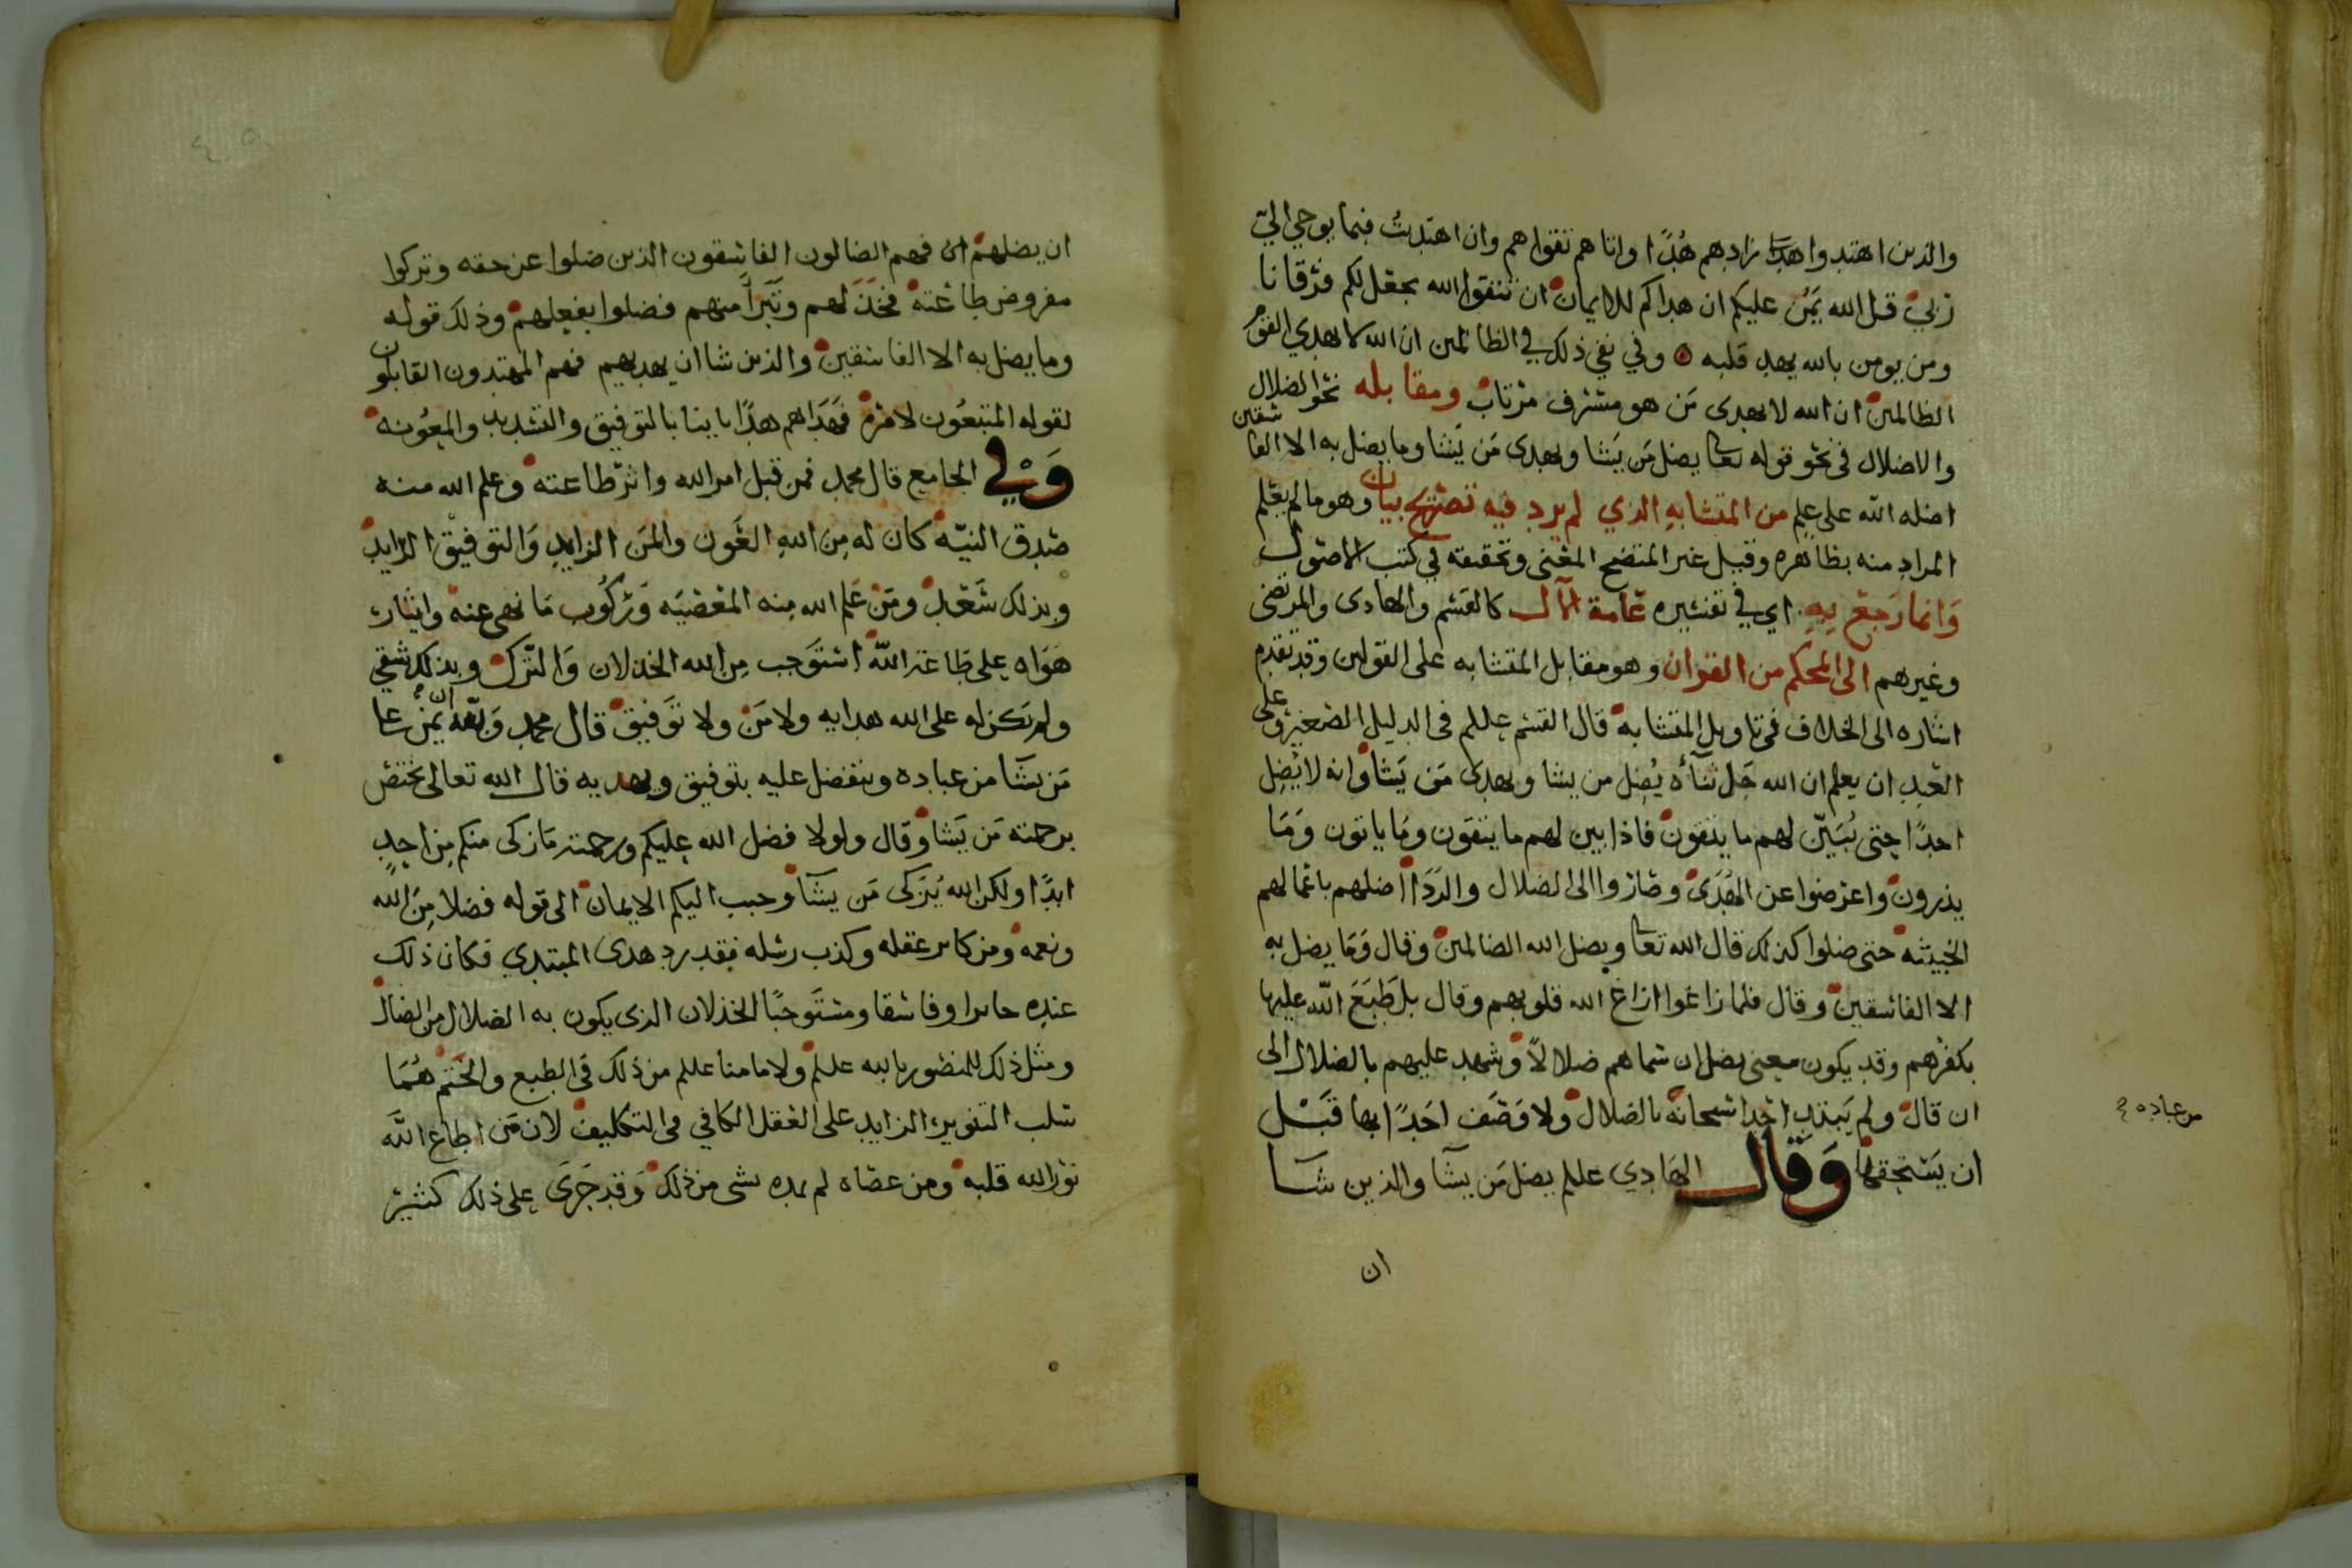 والذين اهتدوا هدا زادهم هُدًا واتاهم تقواهم وان اهتديت فبما يوحي اليّ
ربيّ قل الله يَمُنّ عليكم ان هداكم للايمان ان تتقوا الله يجعل لكم فرقانا
ومن يومن بالله يهد قلبه وفي نفي ذلك في الظالمين ان الله لا يهدي القوم
الظالمين ان الله لا يهدى مَن هو مسرف مرتاب ومقابله نحو الضلال
والاضلال فى نحو قوله تعا يضل مَن يَشا ويهدى مَن يَشا وما يضل به الا الفا سقين
اضله الله على علمٍ من المتشابهِ الذي لم يرد فيه تصريح بيان وهو مالم يعلم
المراد منه بظاهره وقيل غير المتضح المعنى وتحقيقه في كتب الاصول
وَانما رَجع بِهِ اي في تفسيره عَامة الآل كالقسم والهادى والمرتضى
وغيرهم الى المحكم من القران وهو مقابل المتشابه على القولين وقد تقدم
اشاره الى الخلاف في تاويل المتشابه قال القسم عللم فى الدليل الصغير وعلى
العبد ان يعلم ان الله جَل ثنآؤه يُضِل من يشا ويهدى مَن يَشا وانه لا يُضِل
احدًا حتى يُبَيّن لهم ما يتقون فاذا بين لهم ما يتقون ومَا ياتون وَمَا
يذرون واعرضوا عن الهُدَى وصاروا الى الضلال والرَدَا اضلهم باعمالهم
الخبيثه حتى ضلوا كذلك قال الله تعا ويضل الله الضالمين وقال وَمَا يضل به
الا الفاسقين وقال فلما زاغوا ازاغ الله قلوبهم وقال بل طَبَعَ اللّه عليها
بكفرهم وقد يكون معنى يضل ان سماهم ضلالاً وشهد عليهم بالضلال الى
ان قال ولم يَبتدِ احدا سبحانه بالضلال ولا وَصَف احَدًا بها قَبْل
ان يَستحِقها وَقال الهَادِي عللم يضل مَن يشآ والذين شآ
من عباده
ان
ان يضلهم فهم الضالون الفاسقون الذين ضلوا عن حقه وتركوا
مفروض طاعته فخذلهم وتَبَرأ منهم فضلوا بفعلهم وذلك قوله
وما يضل به الا الفاسقين والذين شا ان يهديهم فهم المهتدون القابلون
لقوله المتبعُون لامره فهَدَاهم هدًا باينا بالتوفيق والتسديد والمعُونه
وَفي الجامع قال محمد فمن قبل امر الله واثر طاعته وعلم الله منه
صدق النيّه كان له مِن اللهِ العَون والمنَ الزايدِ وَالتوفيق الزايد
وبذلك سَعَد ومَن عَلم الله مِنه المعصيَه وَرُكُوب مَا نهى عنه وايثار
هَوَاه على طاعة اللّه استوَجب مِن الله الخذلان وَالتّرك وبذلك شقي
ولم تكن له على الله هدايه ولا مَن ولا تَوفيق قال محمد وَاللّه يمن على
مَن يشآ من عباده ويتفضل عليه بتوفيق ويهديه قال الله تعالى يختص
برحمته مَن يَشا وقال ولولا فضل الله عليكم ورحمته مَا زكى منكم مِن احدٍ
ابدًا ولكن الله يُزكى مَن يشآ وحبب اليكم الايمان الى قوله فضلا مِنَ الله
ونعمه ومن كابر عقله وكذب رسله فقد رد هدى المبتدي فكان ذلك
عنده جابرا وفاسقا ومستَوجبًا الخذلان الذى يكون به الضلال من الضال
ومثل ذلك للمنصور بالله عللم ولامامنا عللم من ذلك فى الطبع والختم هُمَا
سلب التنوير الزايد على العقل الكافي فى التكليف لان مَن اطاع اللَّه
نوّر الله قلبه ومن عصاه لم يمده بشى من ذلك وَقد جَرَى على ذلك كثير